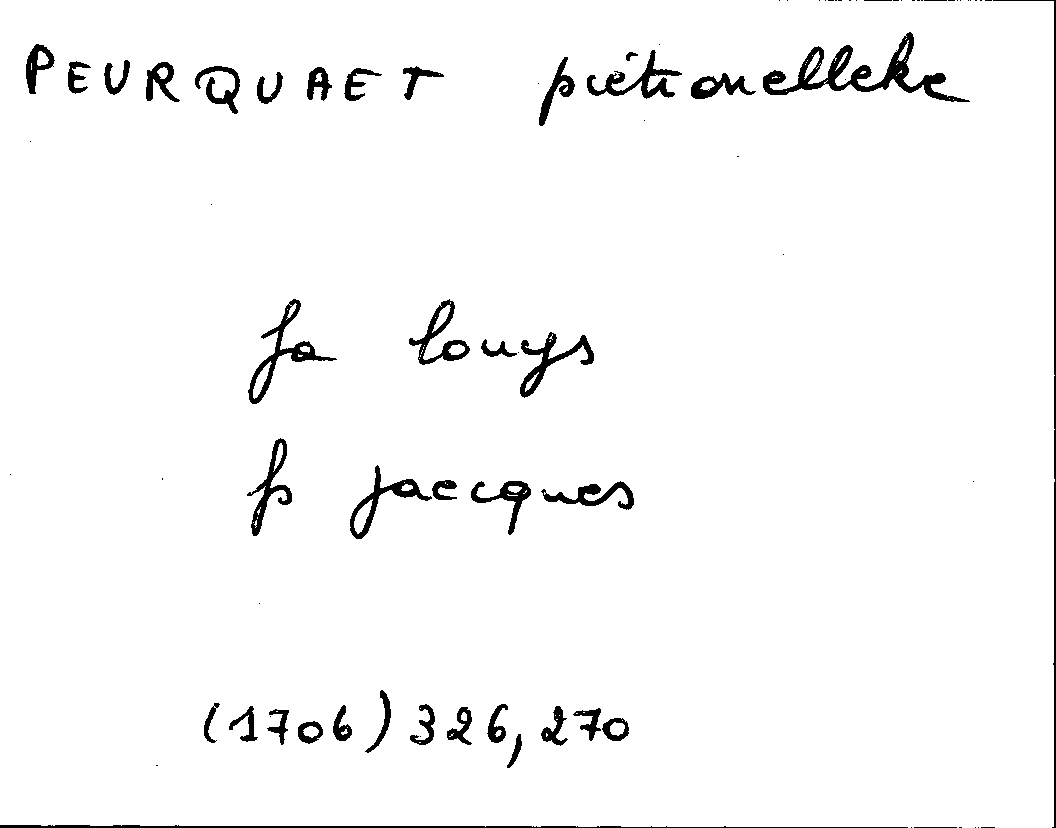 PEURQUAET piétronelleke
fa louys
fs jaecques
(1706) 326, 270